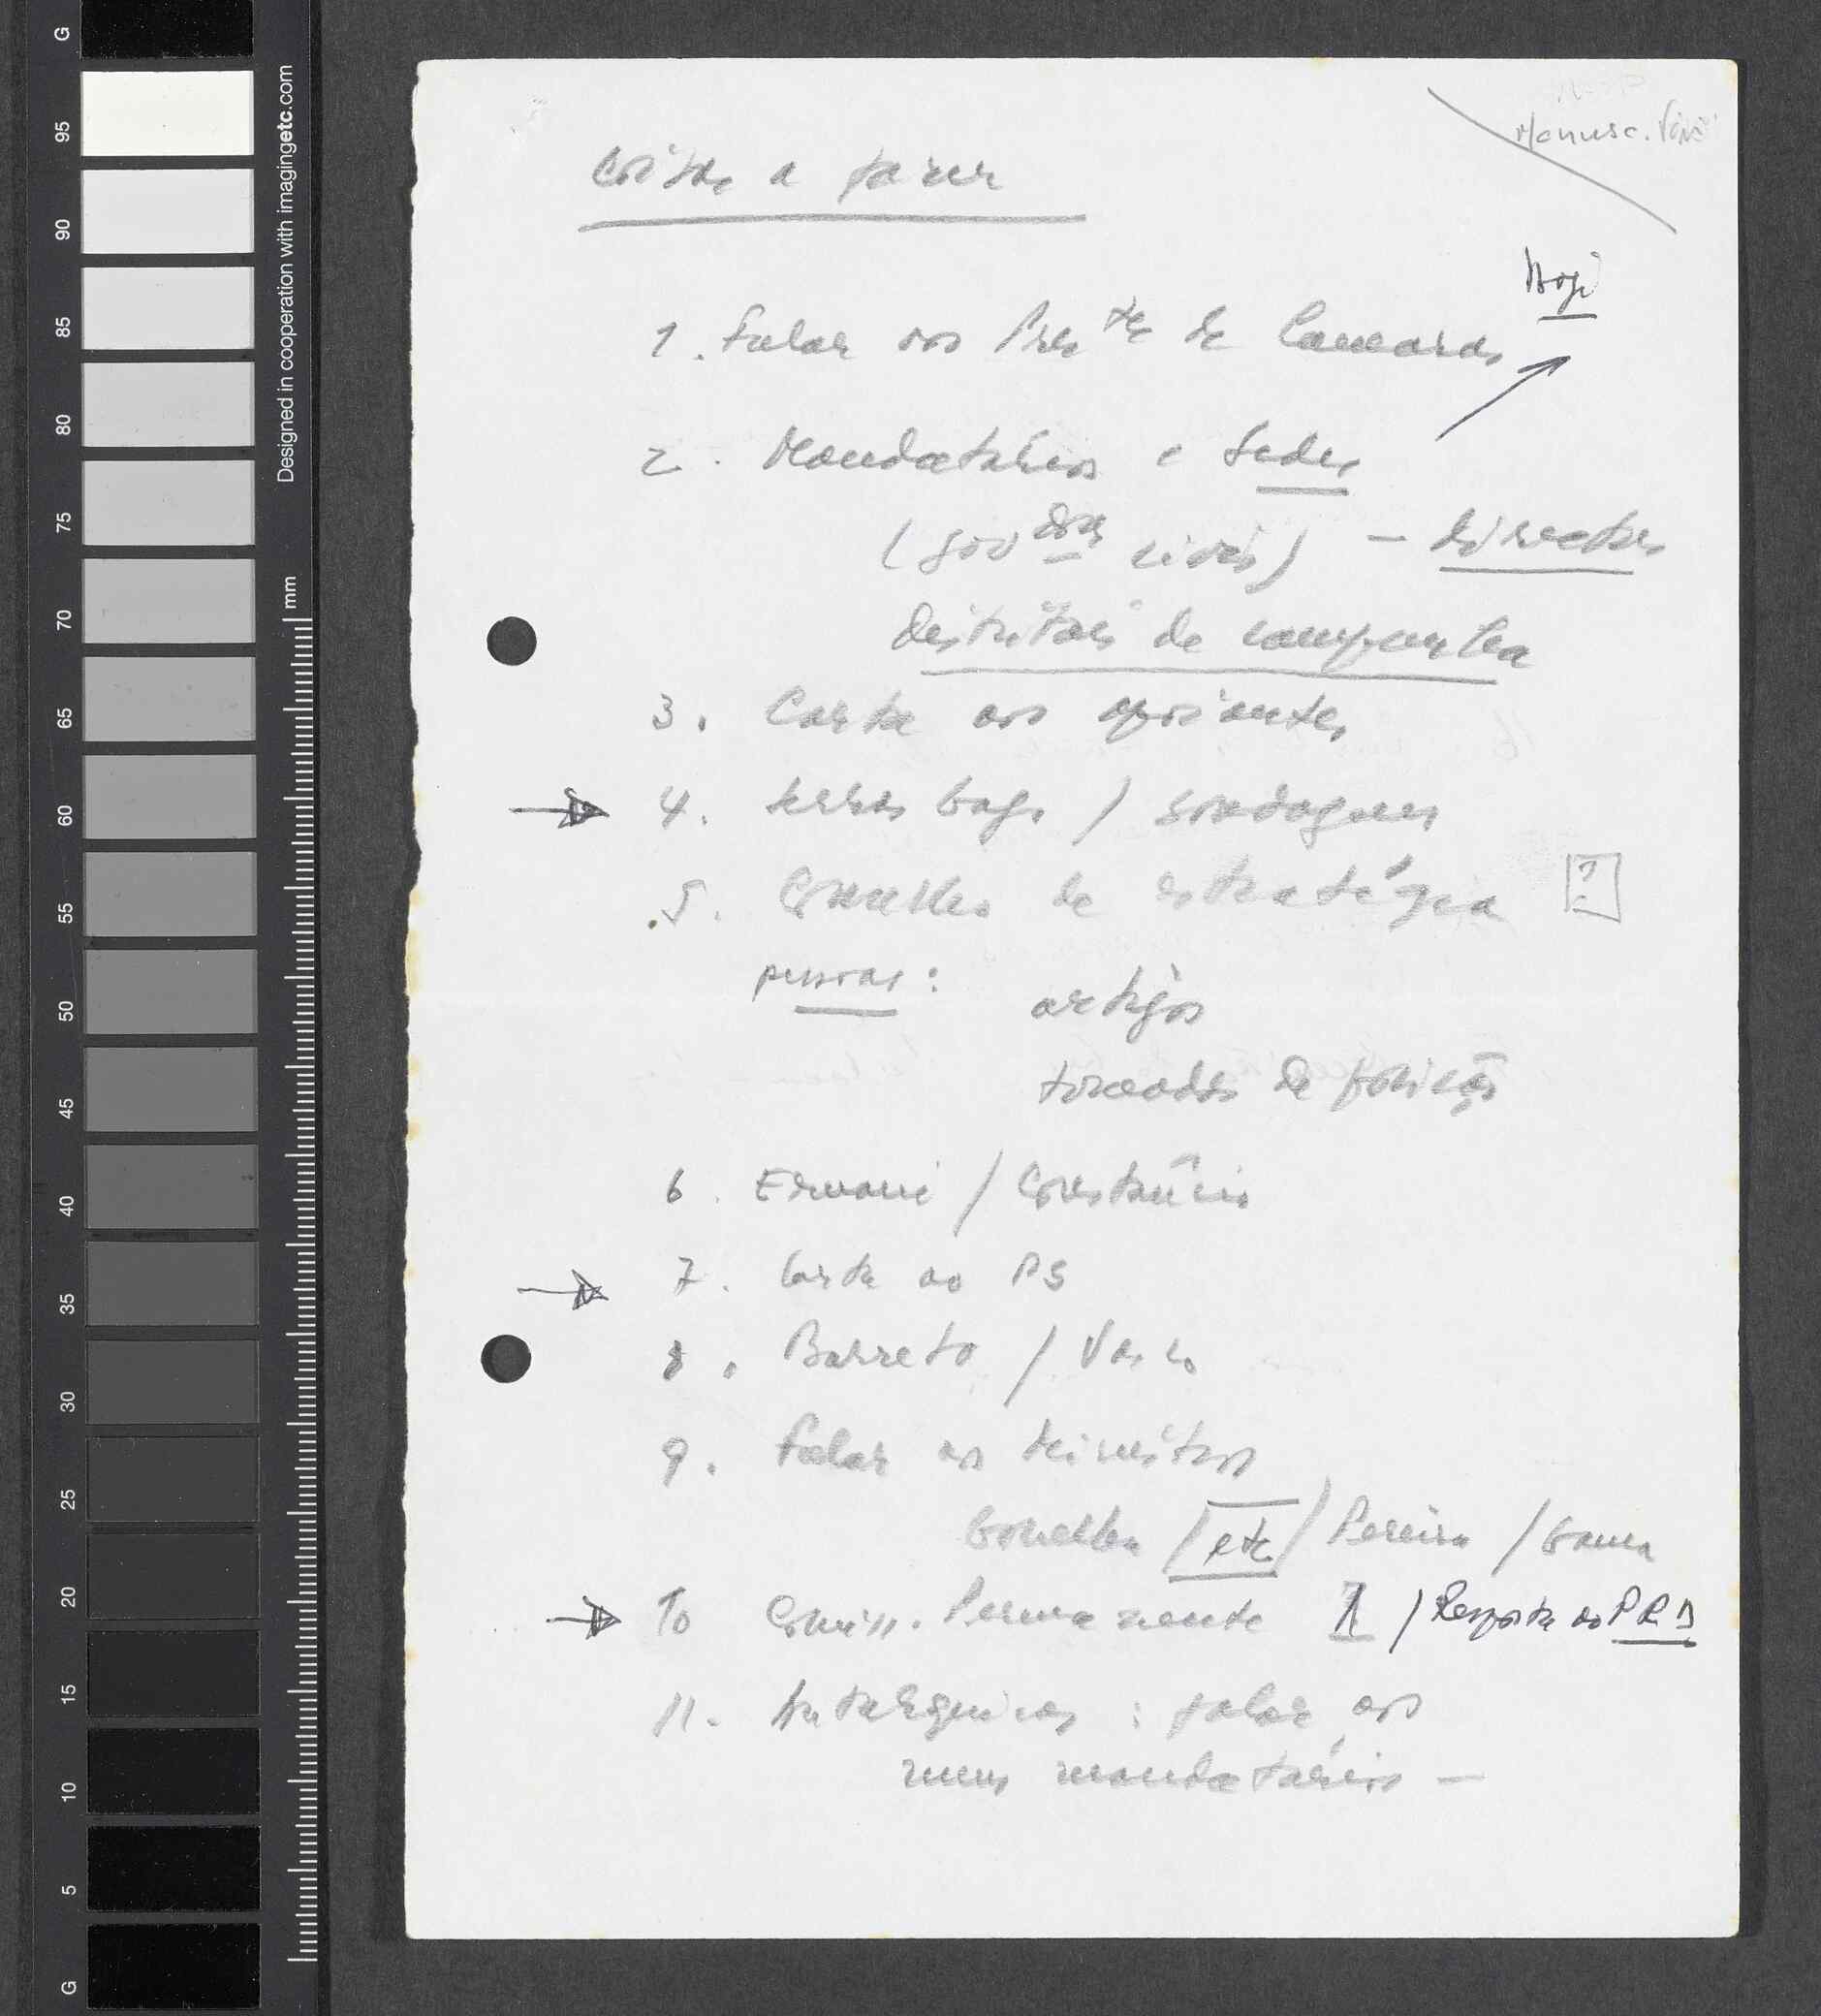 Manusc.
Coisas a fazer
Hoje
1. Falar aos Pres tes de Camaras
2. Mandatários e Sedes
(gov dores civis) — directores
distritais de campanha
3. Carta aos apoiantes
4. / sondagens
5. Conselho de estratégia ?
pessoas:
artigos
tomadas de posição
6. Ernani / Constâncio
7. Carta ao PS
8. Barreto / Vasco
9. Falar aos
/ etc / Pereira / Gama
10 Comiss. Permanente 1 / Resposta ao PRD
11. : falar aos
meus mandatários —
G
95
90
85
80
75
70
65
60
55
50
45
40
35
30
25
20
15
10
5
G
Designed in cooperation with imagingetc.com
mm